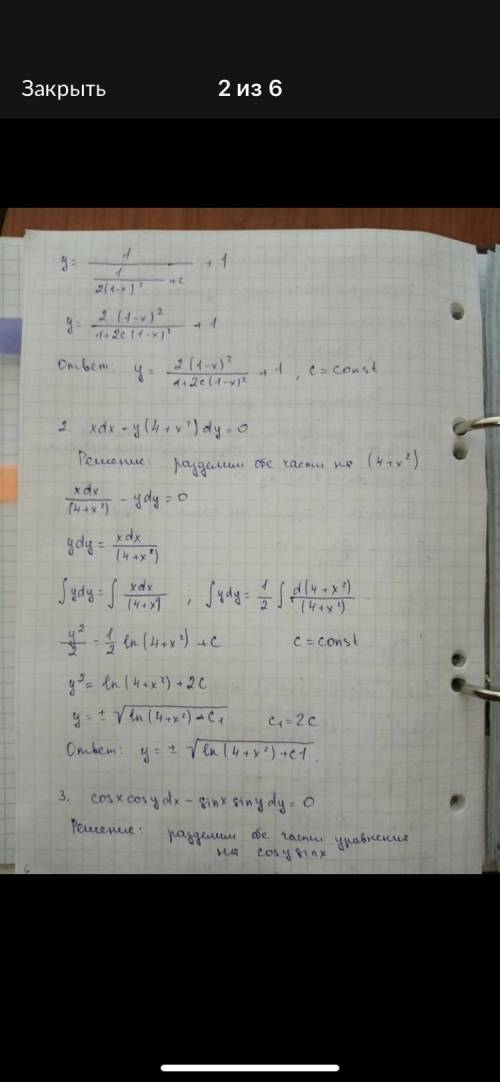 Закрыть 2 из 6
y = 1 / (1/(2(1-x)²) + c) + 1
y = 2(1-x)² / (1+2c(1-x)²) + 1
Ответ: y = 2(1-x)² / (1+2c(1-x)²) + 1, c = const
2. xdx - y(4+x²)dy = 0
Решение: разделим обе части на (4+x²)
xdx/(4+x²) - ydy = 0
ydy = xdx/(4+x²)
∫ydy = ∫ xdx/(4+x²) ; ∫ydy = 1/2 ∫ d(4+x²)/(4+x²)
y²/2 = 1/2 ln(4+x²) + c c = const
y² = ln(4+x²) + 2c
y = ± √(ln(4+x²) + c₁) c₁ = 2c
Ответ: y = ± √(ln(4+x²) + c1).
3. cosx cosy dx - sinx siny dy = 0
Решение: разделим обе части уравнения
на cosy sinx